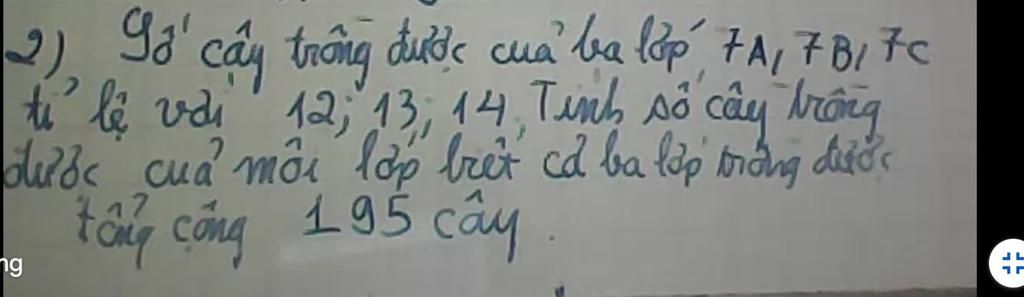 2) Số cây trồng được cuả ba lớp 7A, 7B, 7C
tỉ lệ với 12; 13; 14. Tính số cây trồng
được cuả mỗi lớp biết cả ba lớp trồng được
tổng cộng 195 cây.
ng